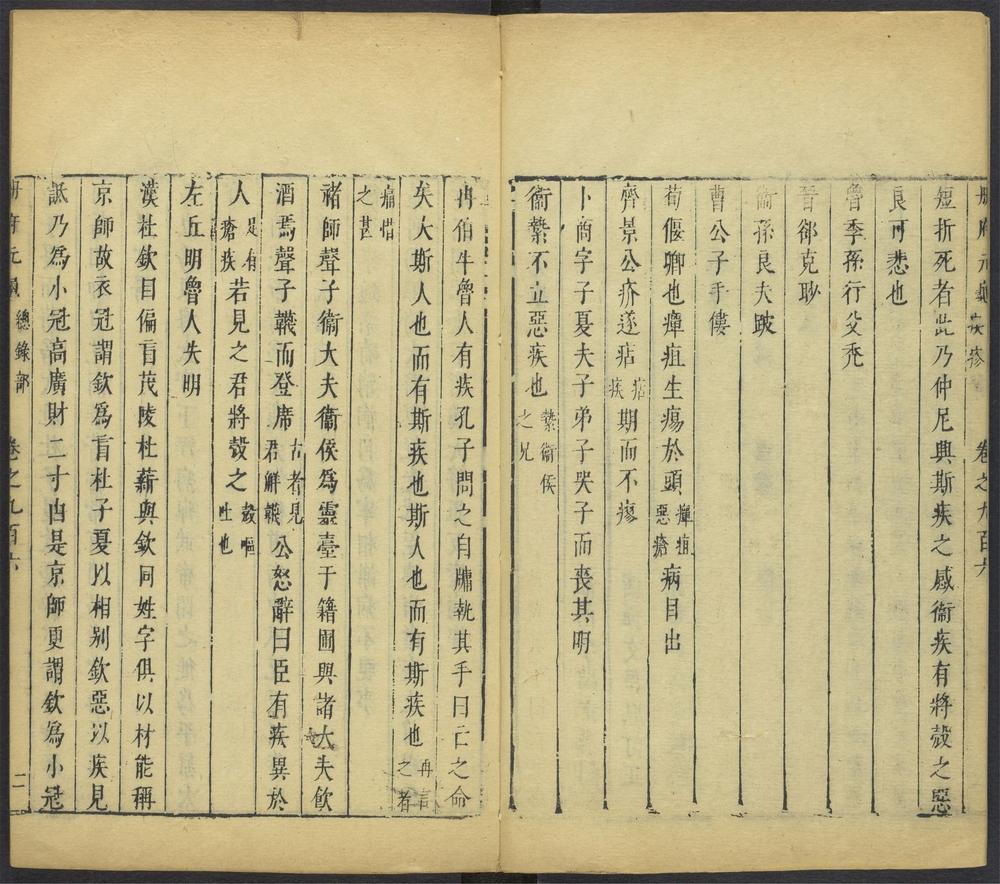 冊府元龜 疾疹 卷之九百六
短折死者此乃仲尼興斯疾之感衞疾有將㱿之惡
良可悲也
魯季孫行父禿
晉郤克眇
衞孫良夫跛
曹公子手僂
荀偃卿也癉疽生瘍於頭癉疽惡瘡病目出
齊景公疥遂痁痁疾期而不瘳
卜商字子夏夫子弟子哭子而喪其明
衞縶不立惡疾也縶衞侯之兄
冉伯牛魯人有疾孔子問之自牖執其手曰亡之命
矣大斯人也而有斯疾也斯人也而有斯疾也再言之者
痛惜之甚
褚師聲子衞大夫衞侯爲靈臺于籍圃與諸大夫飲
酒焉聲子韈而登席古者見君解韈公怒辭曰臣有疾異於
人足有瘡疾若見之君將㱿之㱿嘔吐也
左丘明魯人失明
漢杜欽目偏盲茂陵杜薪與欽同姓字俱以材能稱
京師故衣冠謂欽爲盲杜子夏以相别欽惡以疾見
詆乃爲小冠高廣財二寸由是京師更謂欽爲小冠
冊府元龜 總錄部 卷之九百六 二